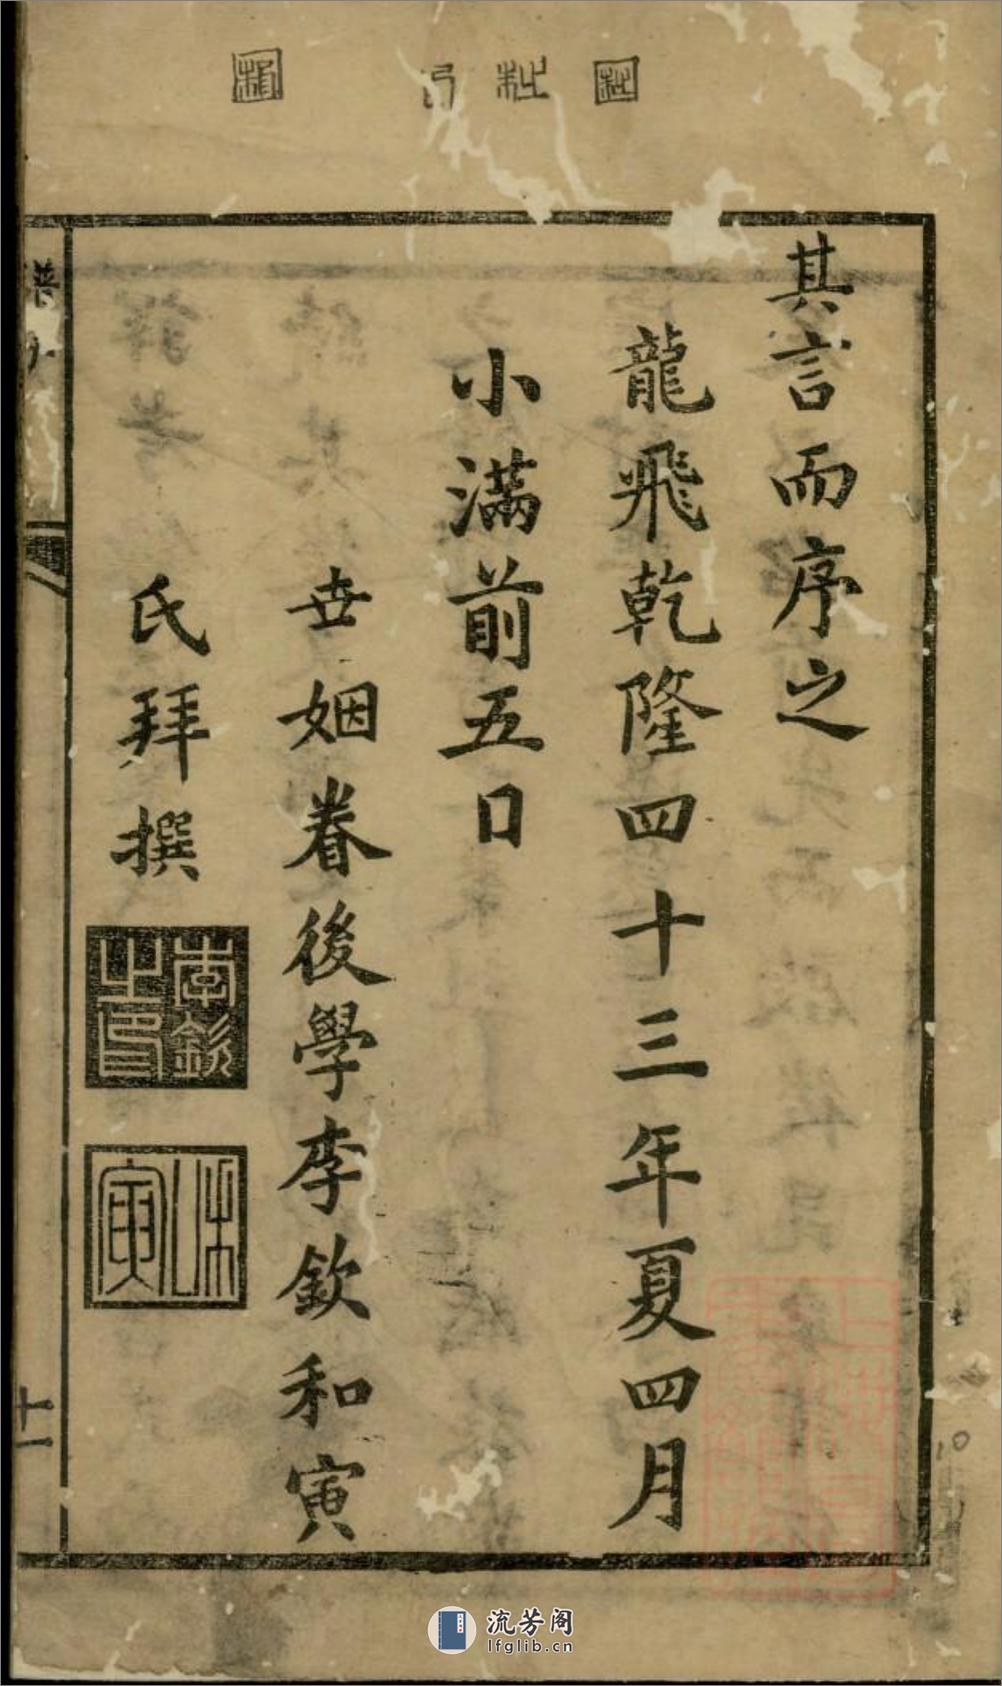 其言而序之
龍飛乾隆四十三年夏四月
小滿前五日
世姻眷後學李欽和寅
氏拜撰
李欽之印
和寅
十二
10
流芳阁
lfglib.cn